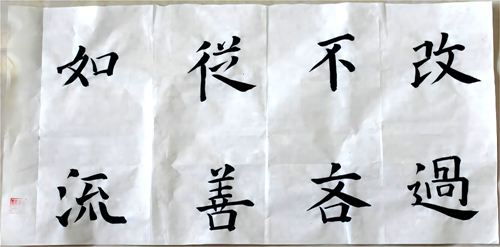 改過
不吝
從善
如流